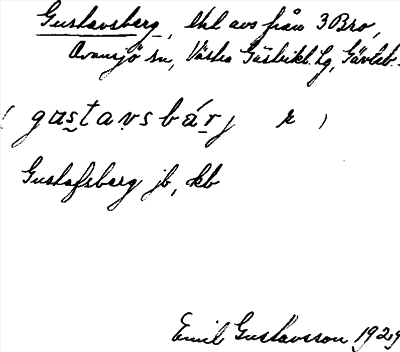 Gustavsberg, lht avs från 3 Bro,
Ovansjö sn, Västra Gästrikl. hg, Gävleb.
(gustavsbárj r)
Gustafsberg jb, kb
Emil Gustavsson 1929